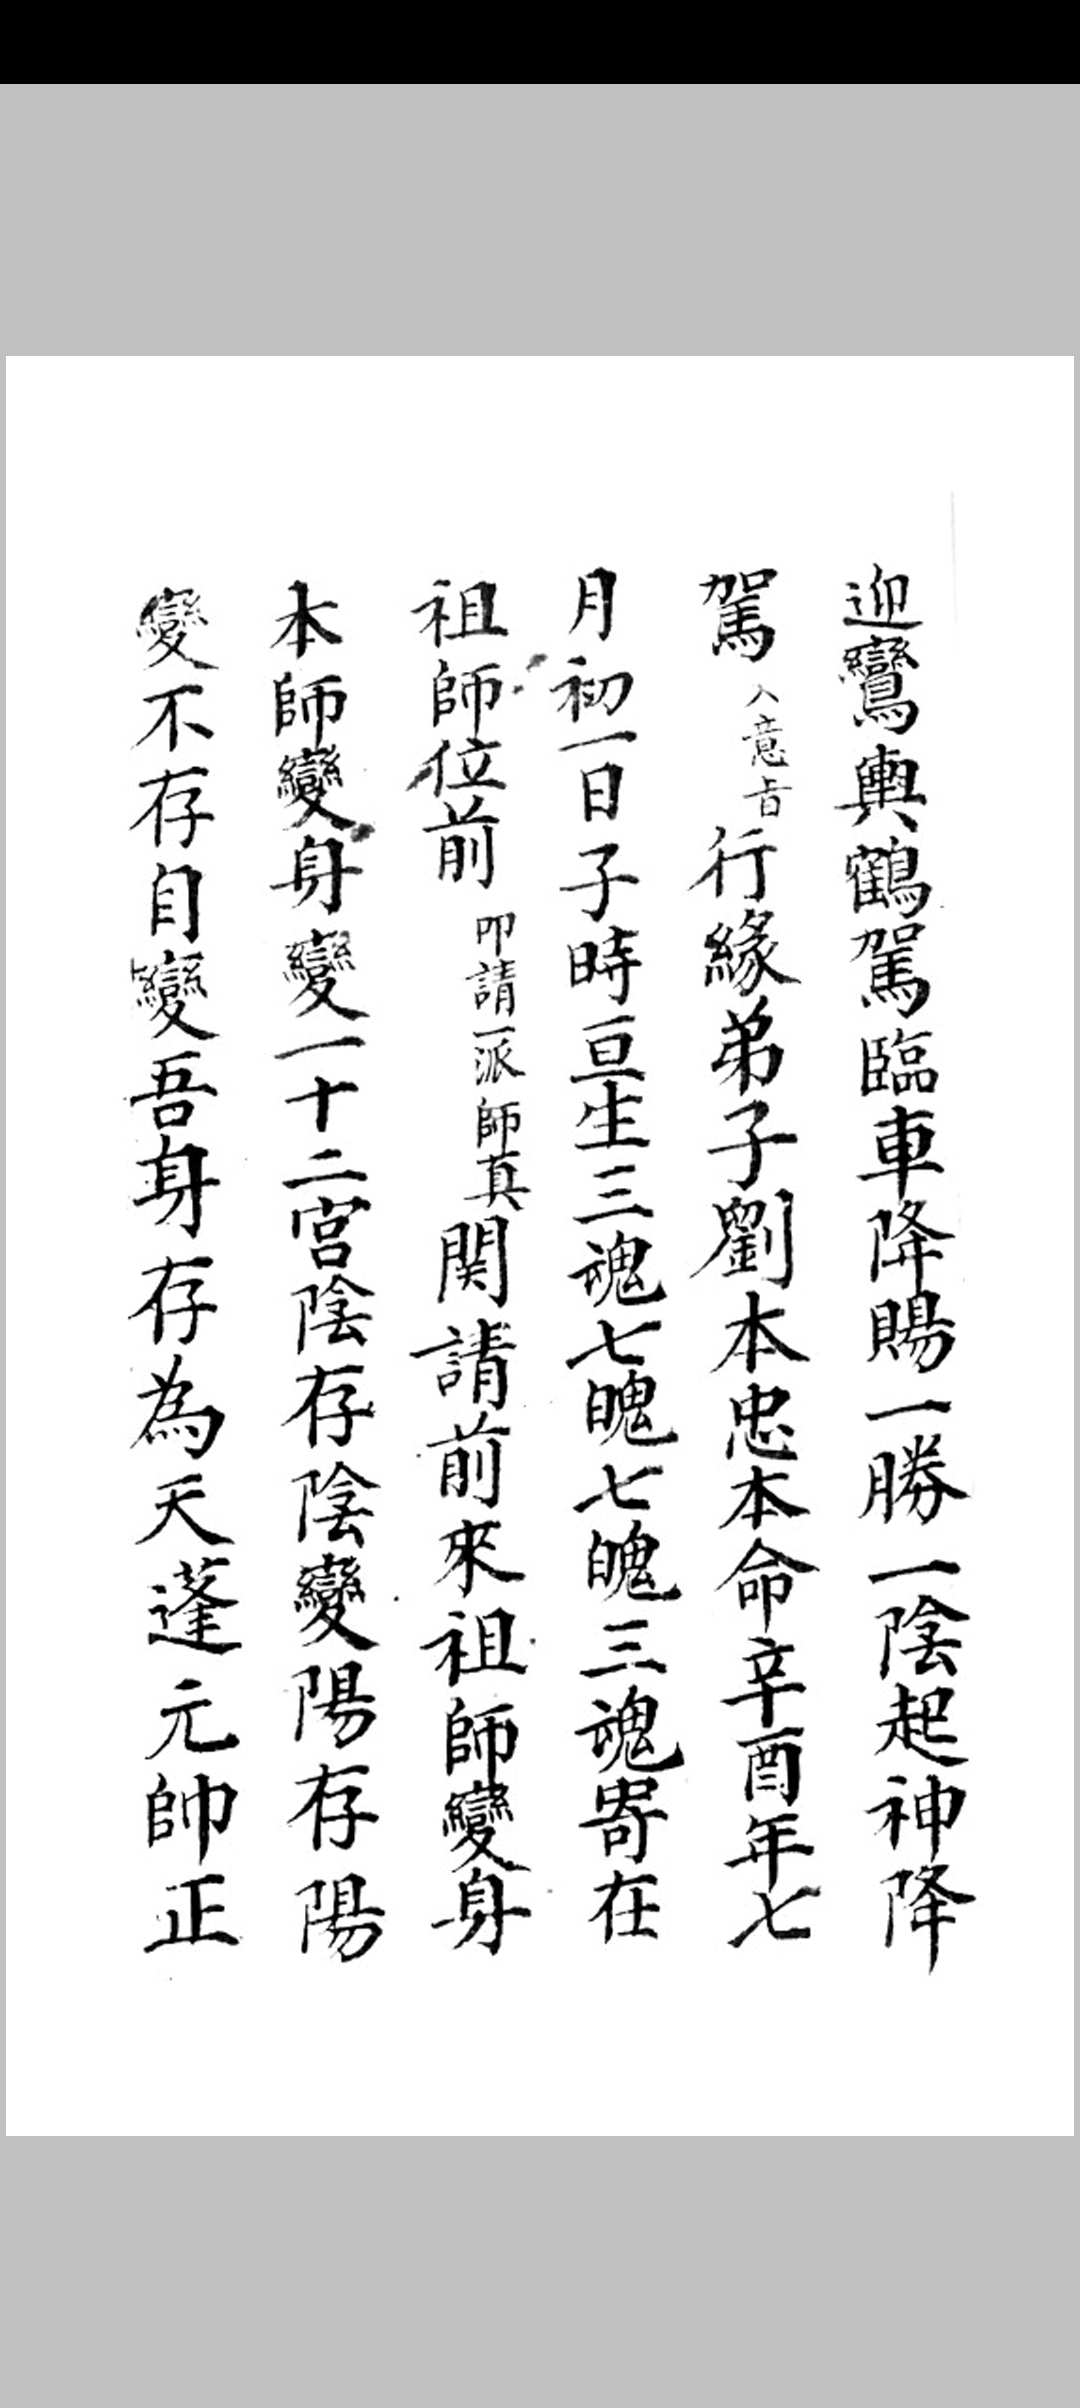 迎鸞輿鶴駕臨車降賜一勝一陰起神降
駕入意旨行緣弟子劉本忠本命辛酉年七
月初一日子時亘生三魂七魄七魄三魂寄在
祖師位前叩請一派師真関請前來祖師變身
本師變身變一十二宮陰存陰變陽存陽
變不存自變吾身存為天蓬元帥正